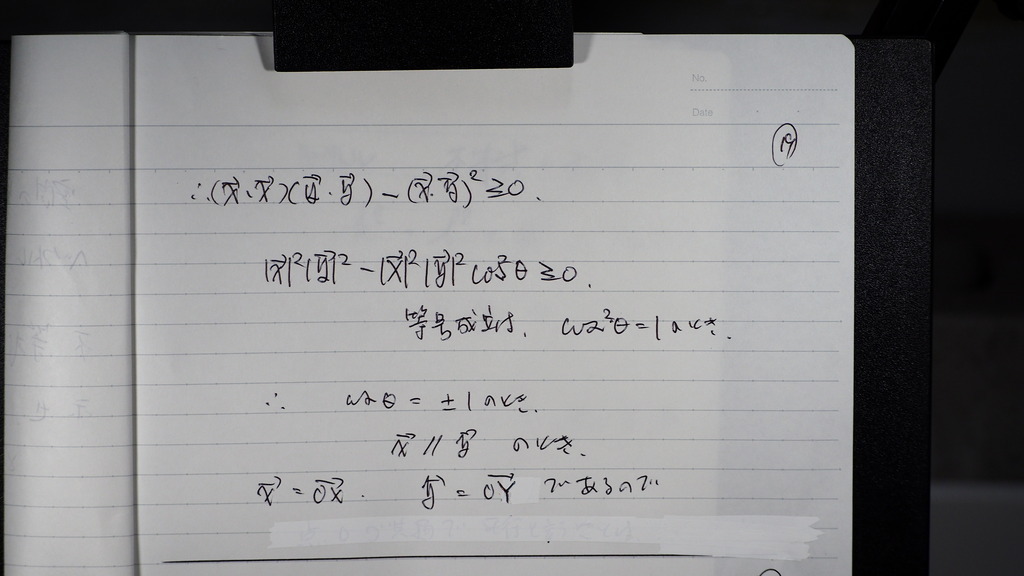 No.
Date
⑲
∴(x⃗·x⃗)(y⃗·y⃗)-(x⃗·y⃗)²≧0.
|x⃗|²|y⃗|²-|x⃗|²|y⃗|²cos²θ≧0.
等号成立は、cos²θ=1のとき.
∴ cosθ=±1のとき.
x⃗ // y⃗ のとき.
x⃗=OX⃗. y⃗=OY⃗ であるので